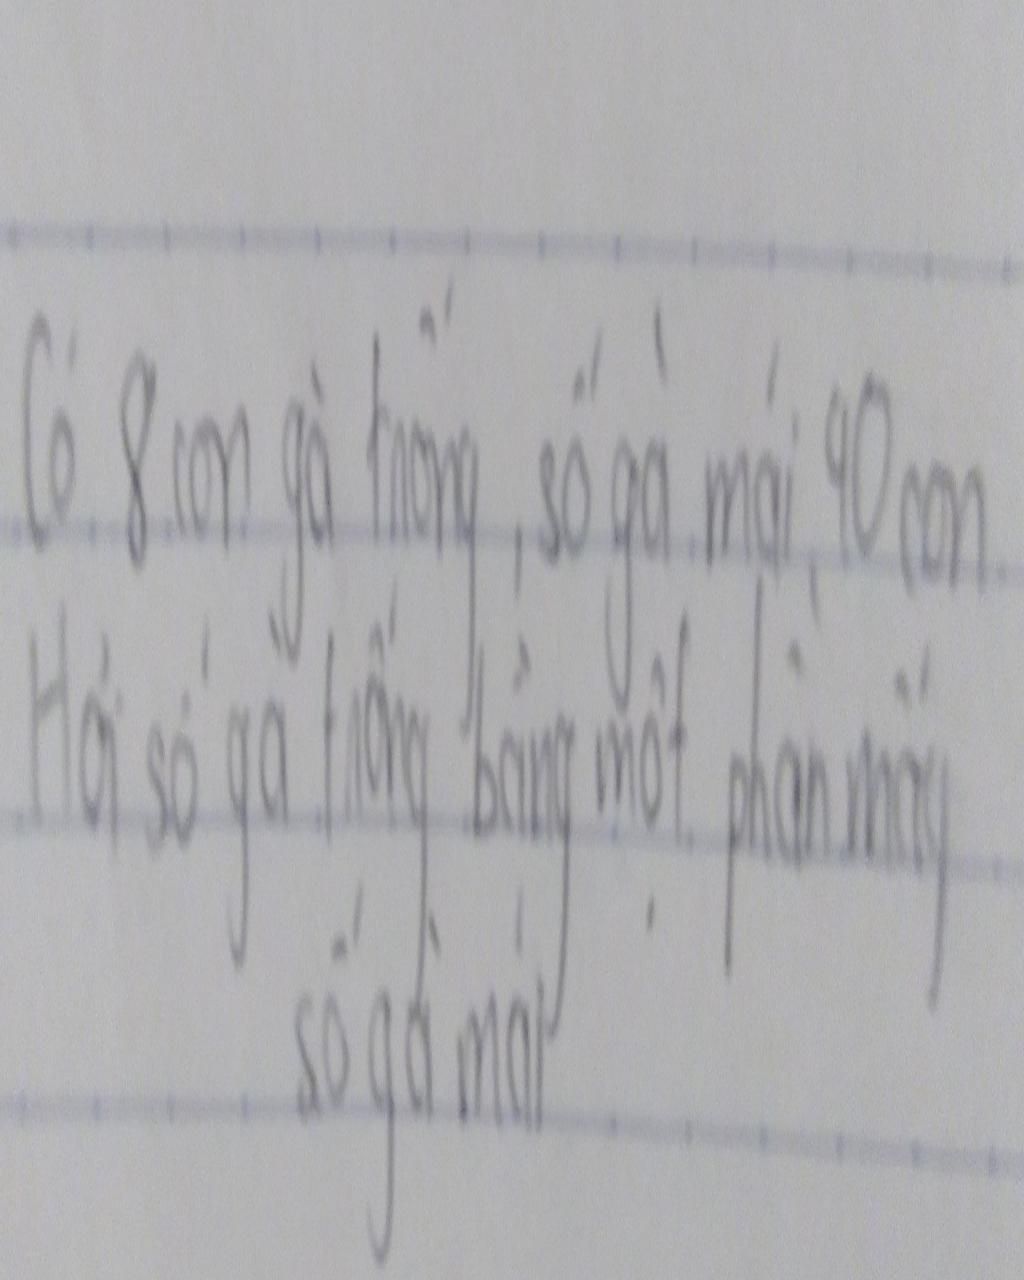 Có 8 con gà trống, số gà mái 40 con
Hỏi số gà trống bằng một phần mấy
số gà mái